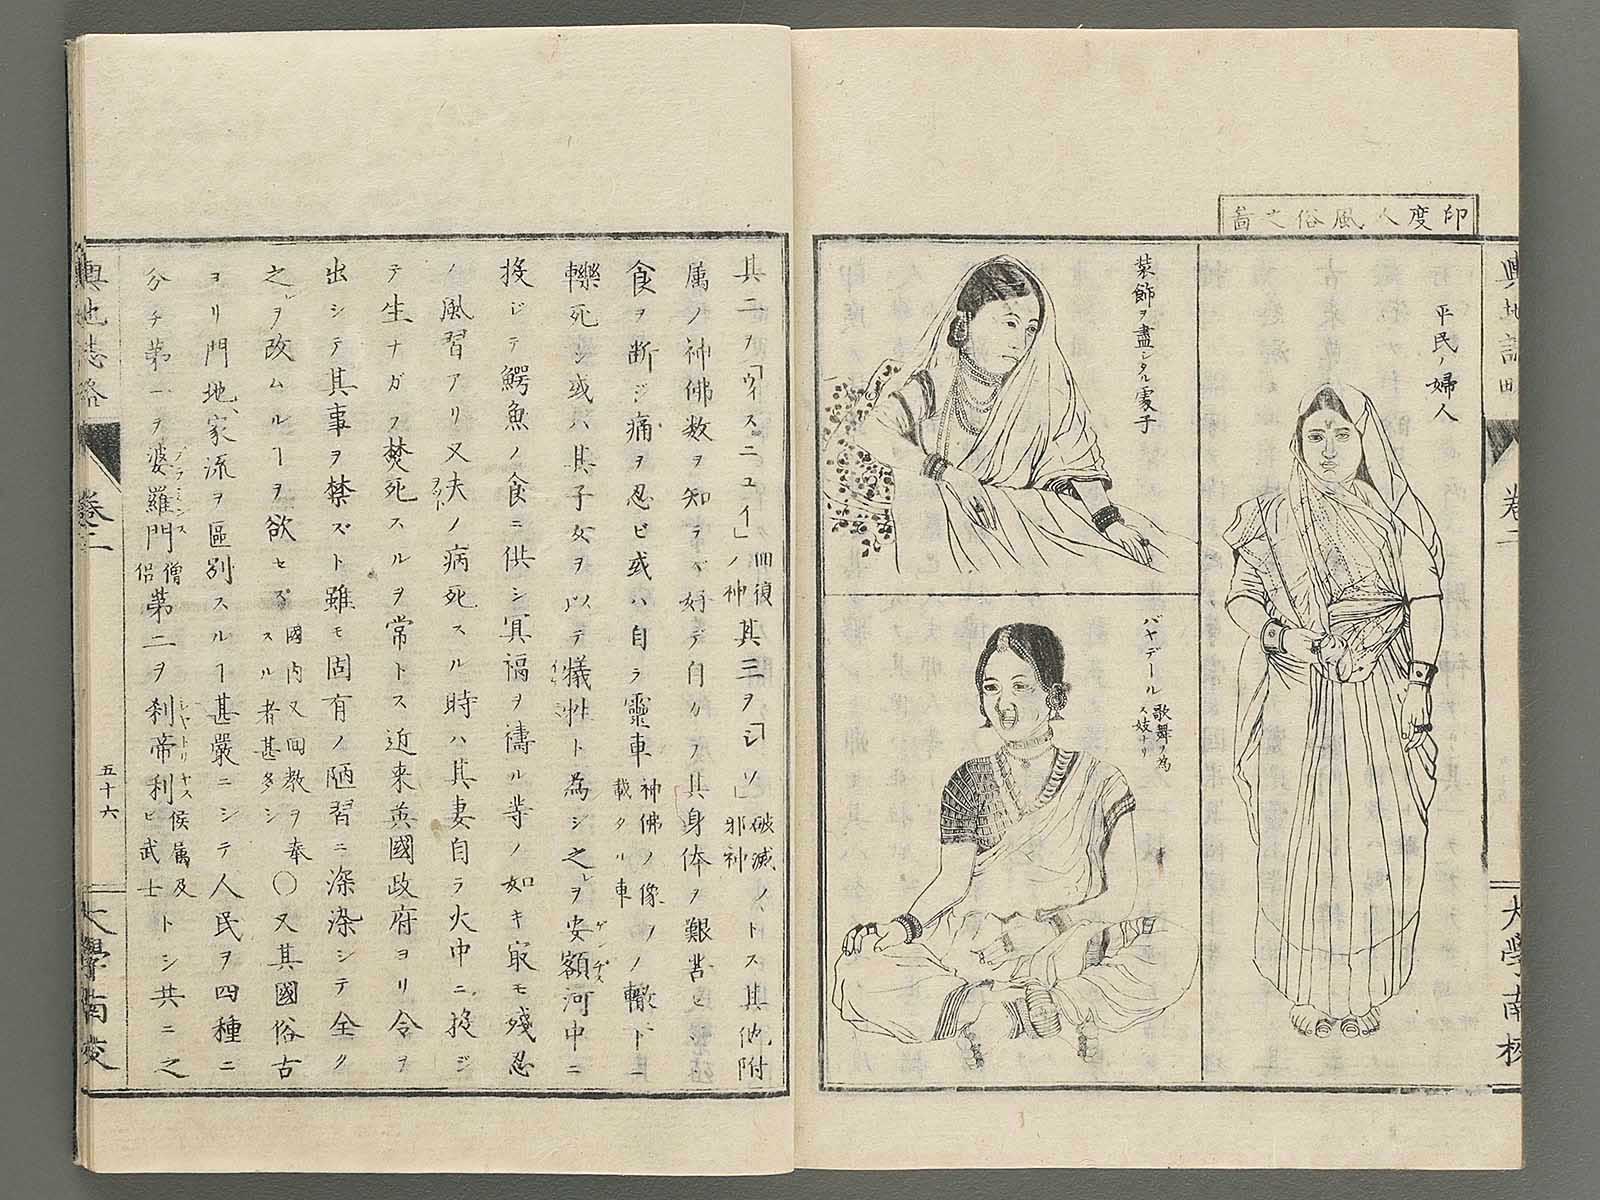 印度人風俗之圖
輿地誌略
卷二
大學南校
平民ノ婦人
装飾ヲ盡シタル處子
バヤデール 歌舞ヲ為ス妓ナリ
其二ヲ「ウィスニュイ」ノ神 回復 其三ヲ「シソ」 破滅ノ邪神 トス其他附
属ノ神佛数ヲ知ラズ好デ自カラ其身体ヲ艱苦シ
食ヲ断ジ痛ヲ忍ビ或ハ自ラ靈車 神佛ノ像ヲ載タル車 ノ轍下ニ
轢死シ或ハ其子女ヲ以テ犠牲ト為シ之ヲ安額河中ニ
投ジテ鰐魚ノ食ニ供シ冥福ヲ禱ル等ノ如キ寂モ殘忍
ノ風習アリ又夫ノ病死スル時ハ其妻自ラ火中ニ投ジ
テ生ナガラ焚死スルヲ常トス近来英國政府ヨリ令ヲ
出シテ其事ヲ禁ズト雖モ固有ノ陋習ニ深染シテ全ク
之ヲ改ムルヿヲ欲セズ 國内又回教ヲ奉スル者甚タシ 〇又其國俗古
ヨリ門地、家流ヲ區別スルヿ甚嚴ニシテ人民ヲ四種ニ
分チ第一ヲ婆羅門 僧侶 第二ヲ刹帝利 侯属及ヒ武士 トシ共ニ之
輿地誌略
卷二
五十六
大學南校